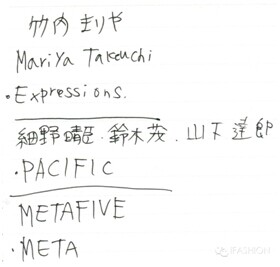 竹内まりや
Mariya Takeuchi
・Expressions.
細野晴臣・鈴木茂・山下達郎
・PACIFIC
METAFIVE
・META
iFASHION